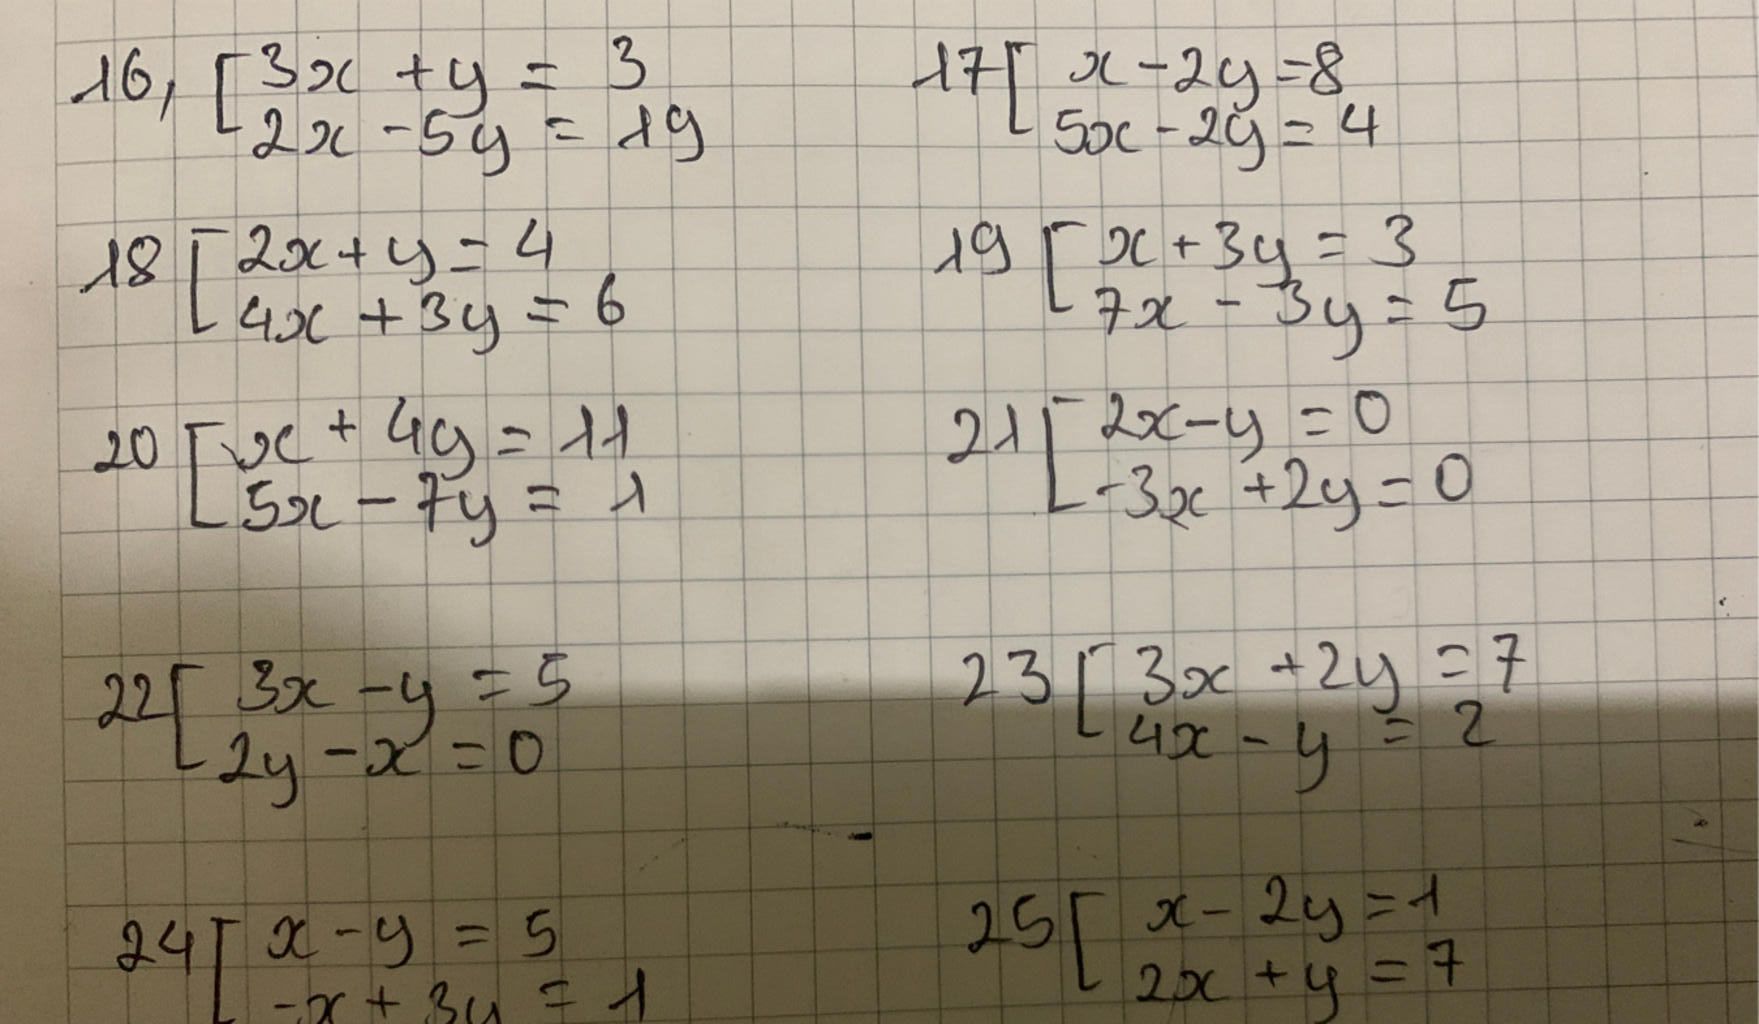 16, [ 3x + y = 3
2x - 5y = 19
17 [ x - 2y = 8
5x - 2y = 4
18 [ 2x + y = 4
4x + 3y = 6
19 [ x + 3y = 3
7x - 3y = 5
20 [ x + 4y = 11
5x - 7y = 1
21 [ 2x - y = 0
-3x + 2y = 0
22 [ 3x - y = 5
2y - x = 0
23 [ 3x + 2y = 7
4x - y = 2
24 [ x - y = 5
-x + 3y = 1
25 [ x - 2y = 1
2x + y = 7